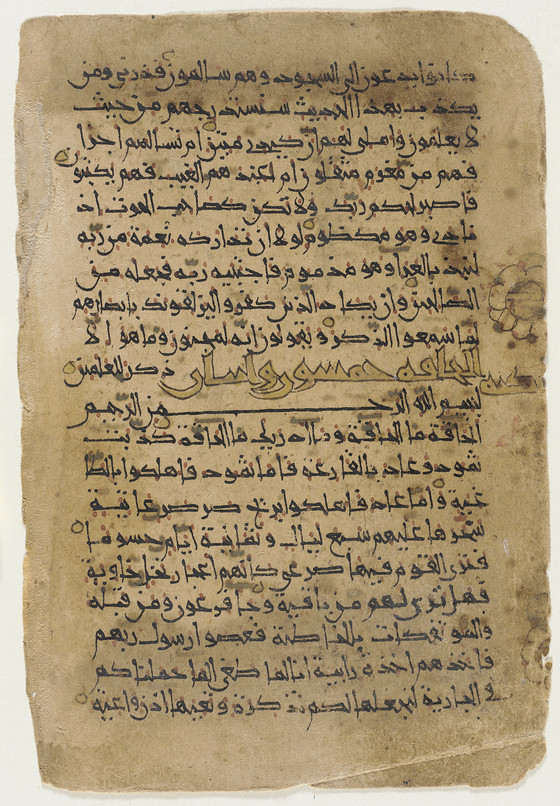 كانوا يدعون الى السجود وهم سالمون فذرني ومن
يكذب بهذا الحديث سنستدرجهم من حيث
لا يعلمون واملي لهم ان كيدي متين ام تسالهم اجرا
فهم من مغرم مثقلون ام عندهم الغيب فهم يكتبون
فاصبر لحكم ربك ولا تكن كصاحب الحوت اذ
نادى وهو مكظوم لولا ان تداركه نعمة من ربه
لنبذ بالعرا وهو مذموم فاجتبيه ربه فجعله من
الصالحين وان يكاد الذين كفروا ليزلقونك بابصارهم
لما سمعوا الذكر ويقولون انه لمجنون وما هو الا
ذكر للعالمين
الحاقة خمسون واثنان
بسم الله الرحمن الرحيم
الحاقة ما الحاقة وما ادريك ما الحاقة كذبت
ثمود وعاد بالقارعة فاما ثمود فاهلكوا بالطا
غية واما عاد فاهلكوا بريح صرصر عاتية
سخرها عليهم سبع ليال وثمانية ايام حسوما
فترى القوم فيها صرعى كانهم اعجاز نخل خاوية
فهل ترى لهم من باقية وجا فرعون ومن قبله
والموتفكات بالخاطية فعصوا رسول ربهم
فاخذهم اخذة رابية انا لما طغى الما حملناكم
في الجارية لنجعلها لكم تذكرة وتعيها اذن واعية